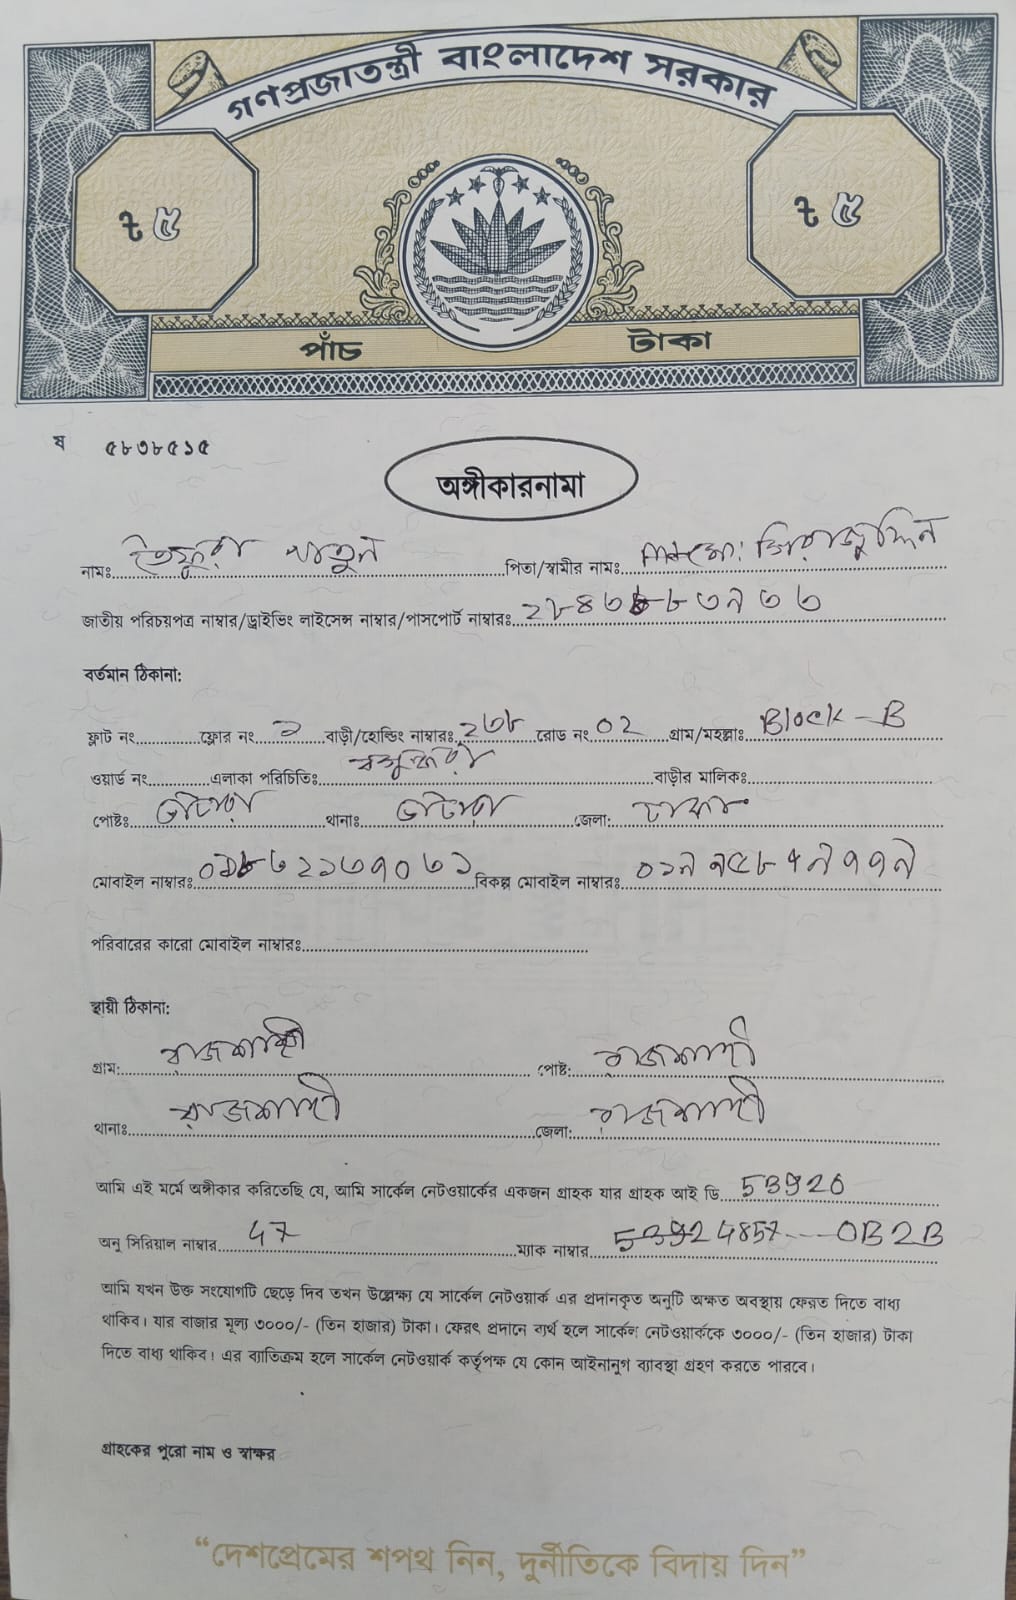 গণপ্রজাতন্ত্রী বাংলাদেশ সরকার
৳ ৫ ৳ ৫
পাঁচ টাকা
ষ ৫৮৩৮৫১৫
অঙ্গীকারনামা
নামঃ খাতুন পিতা/স্বামীর নামঃ মো: সিরাজুদ্দিন
জাতীয় পরিচয়পত্র নাম্বার/ড্রাইভিং লাইসেন্স নাম্বার/পাসপোর্ট নাম্বারঃ
বর্তমান ঠিকানা:
ফ্লাট নং ফ্লোর নং ২ বাড়ী/হোল্ডিং নাম্বারঃ ২৩৮ রোড নং 02 গ্রাম/মহল্লাঃ Block-B
ওয়ার্ড নং এলাকা পরিচিতিঃ বসুন্ধরা বাড়ীর মালিকঃ
পোষ্টঃ ভাটারা থানাঃ ভাটারা জেলা: ঢাকা
মোবাইল নাম্বারঃ বিকল্প মোবাইল নাম্বারঃ
পরিবারের কারো মোবাইল নাম্বারঃ
স্থায়ী ঠিকানা:
গ্রাম: রাজশাহী পোষ্ট: রাজশাহী
থানাঃ রাজশাহী জেলা: রাজশাহী
আমি এই মর্মে অঙ্গীকার করিতেছি যে, আমি সার্কেল নেটওয়ার্কের একজন গ্রাহক যার গ্রাহক আই ডি 53920
অনু সিরিয়াল নাম্বার 47 ম্যাক নাম্বার 53924857---0B2B
আমি যখন উক্ত সংযোগটি ছেড়ে দিব তখন উল্লেক্ষ্য যে সার্কেল নেটওয়ার্ক এর প্রদানকৃত অনুটি অক্ষত অবস্থায় ফেরত দিতে বাধ্য
থাকিব। যার বাজার মূল্য ৩০০০/- (তিন হাজার) টাকা। ফেরৎ প্রদানে ব্যর্থ হলে সার্কেল নেটওয়ার্ককে ৩০০০/- (তিন হাজার) টাকা
দিতে বাধ্য থাকিব। এর ব্যাতিক্রম হলে সার্কেল নেটওয়ার্ক কর্তৃপক্ষ যে কোন আইনানুগ ব্যাবস্থা গ্রহণ করতে পারবে।
গ্রাহকের পুরো নাম ও স্বাক্ষর
“দেশপ্রেমের শপথ নিন, দুর্নীতিকে বিদায় দিন”